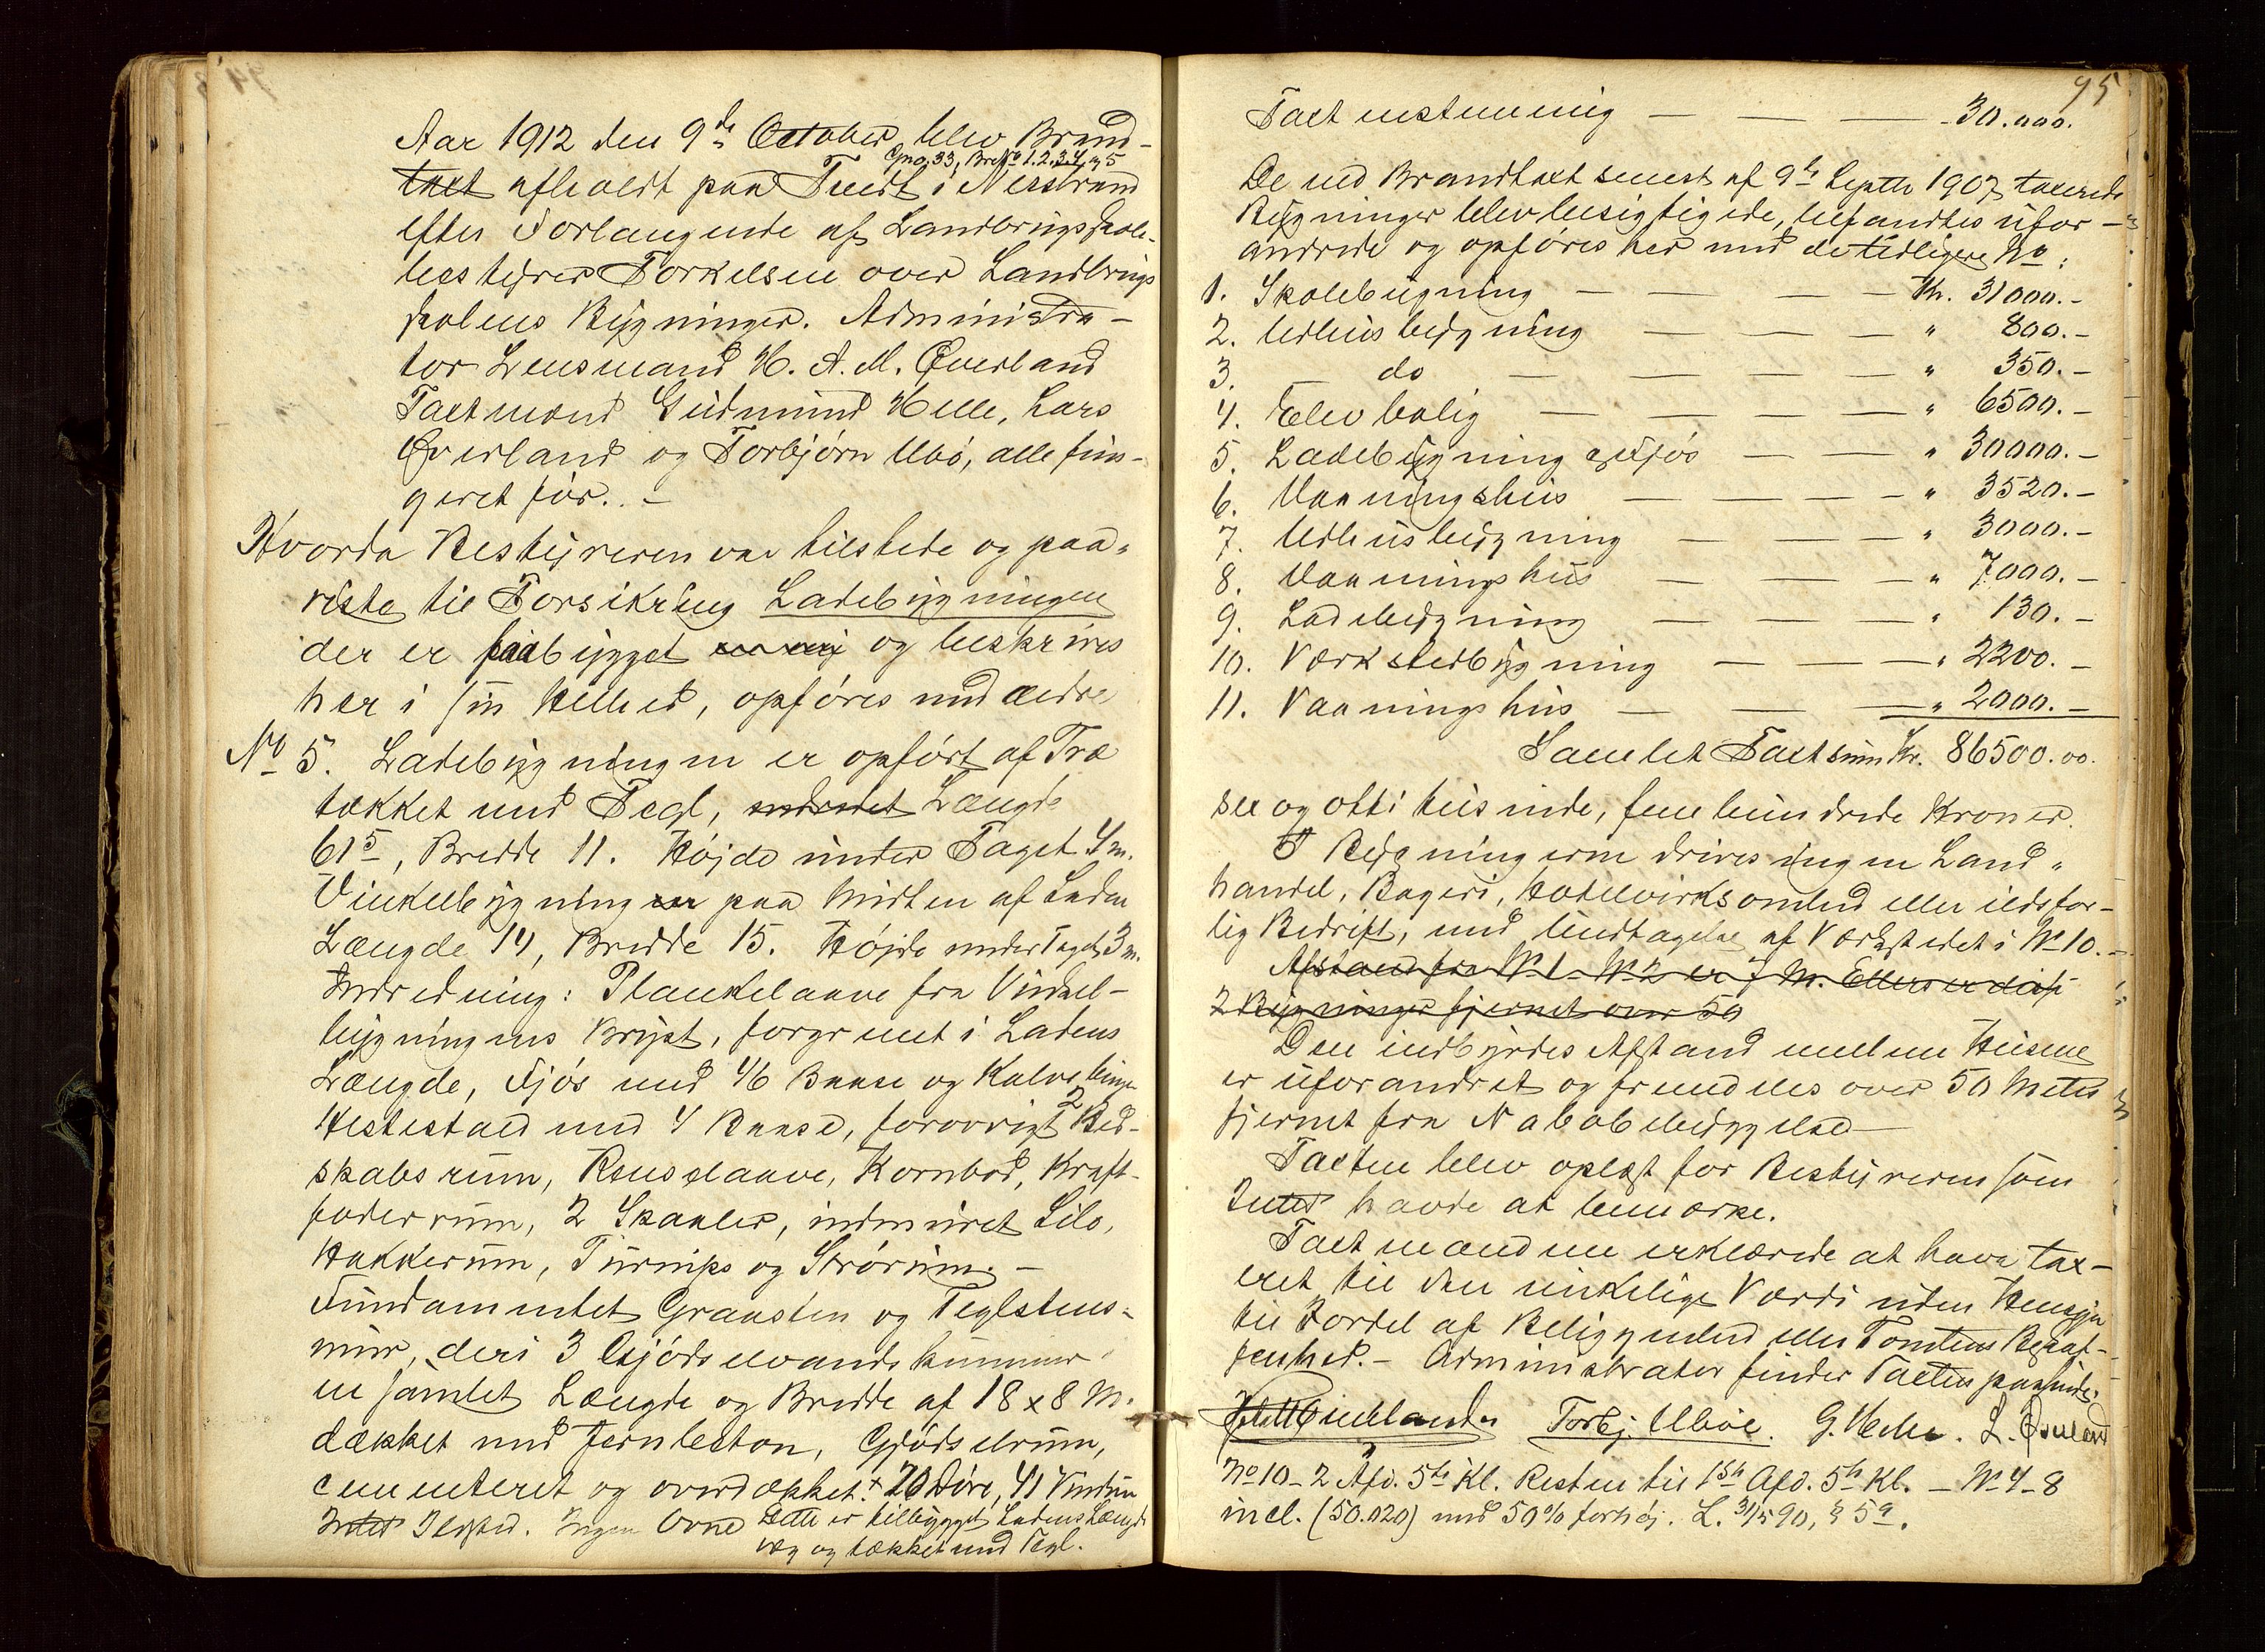 Aar 1912 den 9de October, blev Brand-
Gno. 33, BrNo 1.2.3.4 & 5
taxt afholdt paa Tveidt i Nerstrand
efter Forlangende af Landbrugsskole-
bestyrer Torkelsen over Landbrugs
skolens Bygninger. Administra-
tor Lensmand H. A. M. Qverland
Taxtmænd Gudmund Helle, Lars
Qverland og Torbjørn Ubø, alle fun-
geret før. -
Hvorda Bestyreren var tilstede og paa-
viste til Forsikring Ladebygningen
der er paabygget og beskrives
her i sin Helhed, opføres med ældre
No 5. Ladebygningen er opført af Træ
tækket med Tegl, Længde
61 5, Bredde 11. Højde under Taget 4 m.
Vinkelbygning paa Midten af Laden
Længde 14, Bredde 15. Højde under Taget 3 m.
Indredning: Plankelaave fra Vinkel-
bygningens Bryst, forgrenet i Ladens
Længde, Fjøs med 46 Baase og Kalvebinge
Hestestald med 4 Baase, forøvrigt 2 Red-
skabsrum, Renselaave, Kornbod, Kraft-
foderrum, 2 Skaaler, indmuret Silo,
Hakkerum, Turnips og Strørum. -
Fundamentet Graasten og Teglstens-
mur, deri 3 Gjødselvandskummer
en samlet Længde og Bredde af 18 x 8 M.
dækket med Jernbeton, Gjødselrum,
cementeret og overdækket. + 20 Døre, 41 Vinduer
Intet Ildsted. Ingen Ovne Dette er tilbygget Ladens Længde
væg og tækket med Tegl.
95
Taxt enstemmig — — — 30.000.
De ved Brandtaxt senest af 9de Septb 1907 taxerede
Bygninger blev besigtigede, befandtes ufor-
andrede og opføres her med de tidligere No:
1. Skolebygning — — — Kr. 31000.-
2. Udhusbygning — — — " 800.-
3. do — — — " 350.-
4. Elevbolig — — — " 6500.-
5. Ladebygning og Fjøs — — " 30000.-
6. Vaaningshus — — — " 3520.-
7. Udhusbygning — — — " 3000.-
8. Vaaningshus — — — " 7000.-
9. Ladebygning — — — " 130.-
10. Værkstedbygning — — — " 2200.-
11. Vaaningshus — — — " 2000.-
Samlet Taxtsum Kr. 86500.00.
sex og otti tusinde, fem hundrede Kroner.
I Bygningerne drives ingen Land-
handel, Bageri, Hotelvirksomhed eller ildsfar-
lig Bedrift, med Undtagelse af Værkstedet i No 10.-
Afstand fra No 1 - No 2 er 7 M. Ellers er disse
2 Bygninger fjernet over 50
Den indbyrdes Afstand mellem Husene
er uforandret og fremdeles over 50 Meter
fjernet fra Nabobebyggelse-
Taxten blev oplæst for Bestyreren som
Intet havde at bemærke.
Taxtmændene erklærede at have tax-
eret til den virkelige Værdi uden Hensyn
til Fordel af Beliggenhed eller Tomtens Beskaf-
fenhed. - Administrator finder Taxten passende.
Torbj. Uboe. G. Helle. L. Qverland
No 10 - 2 Afd. 5te Kl. Resten til 1ste Afd. 5te Kl. - No 4-8
incl. (50.020) med 50% forhøj. L. 31/5 90, § 5a.